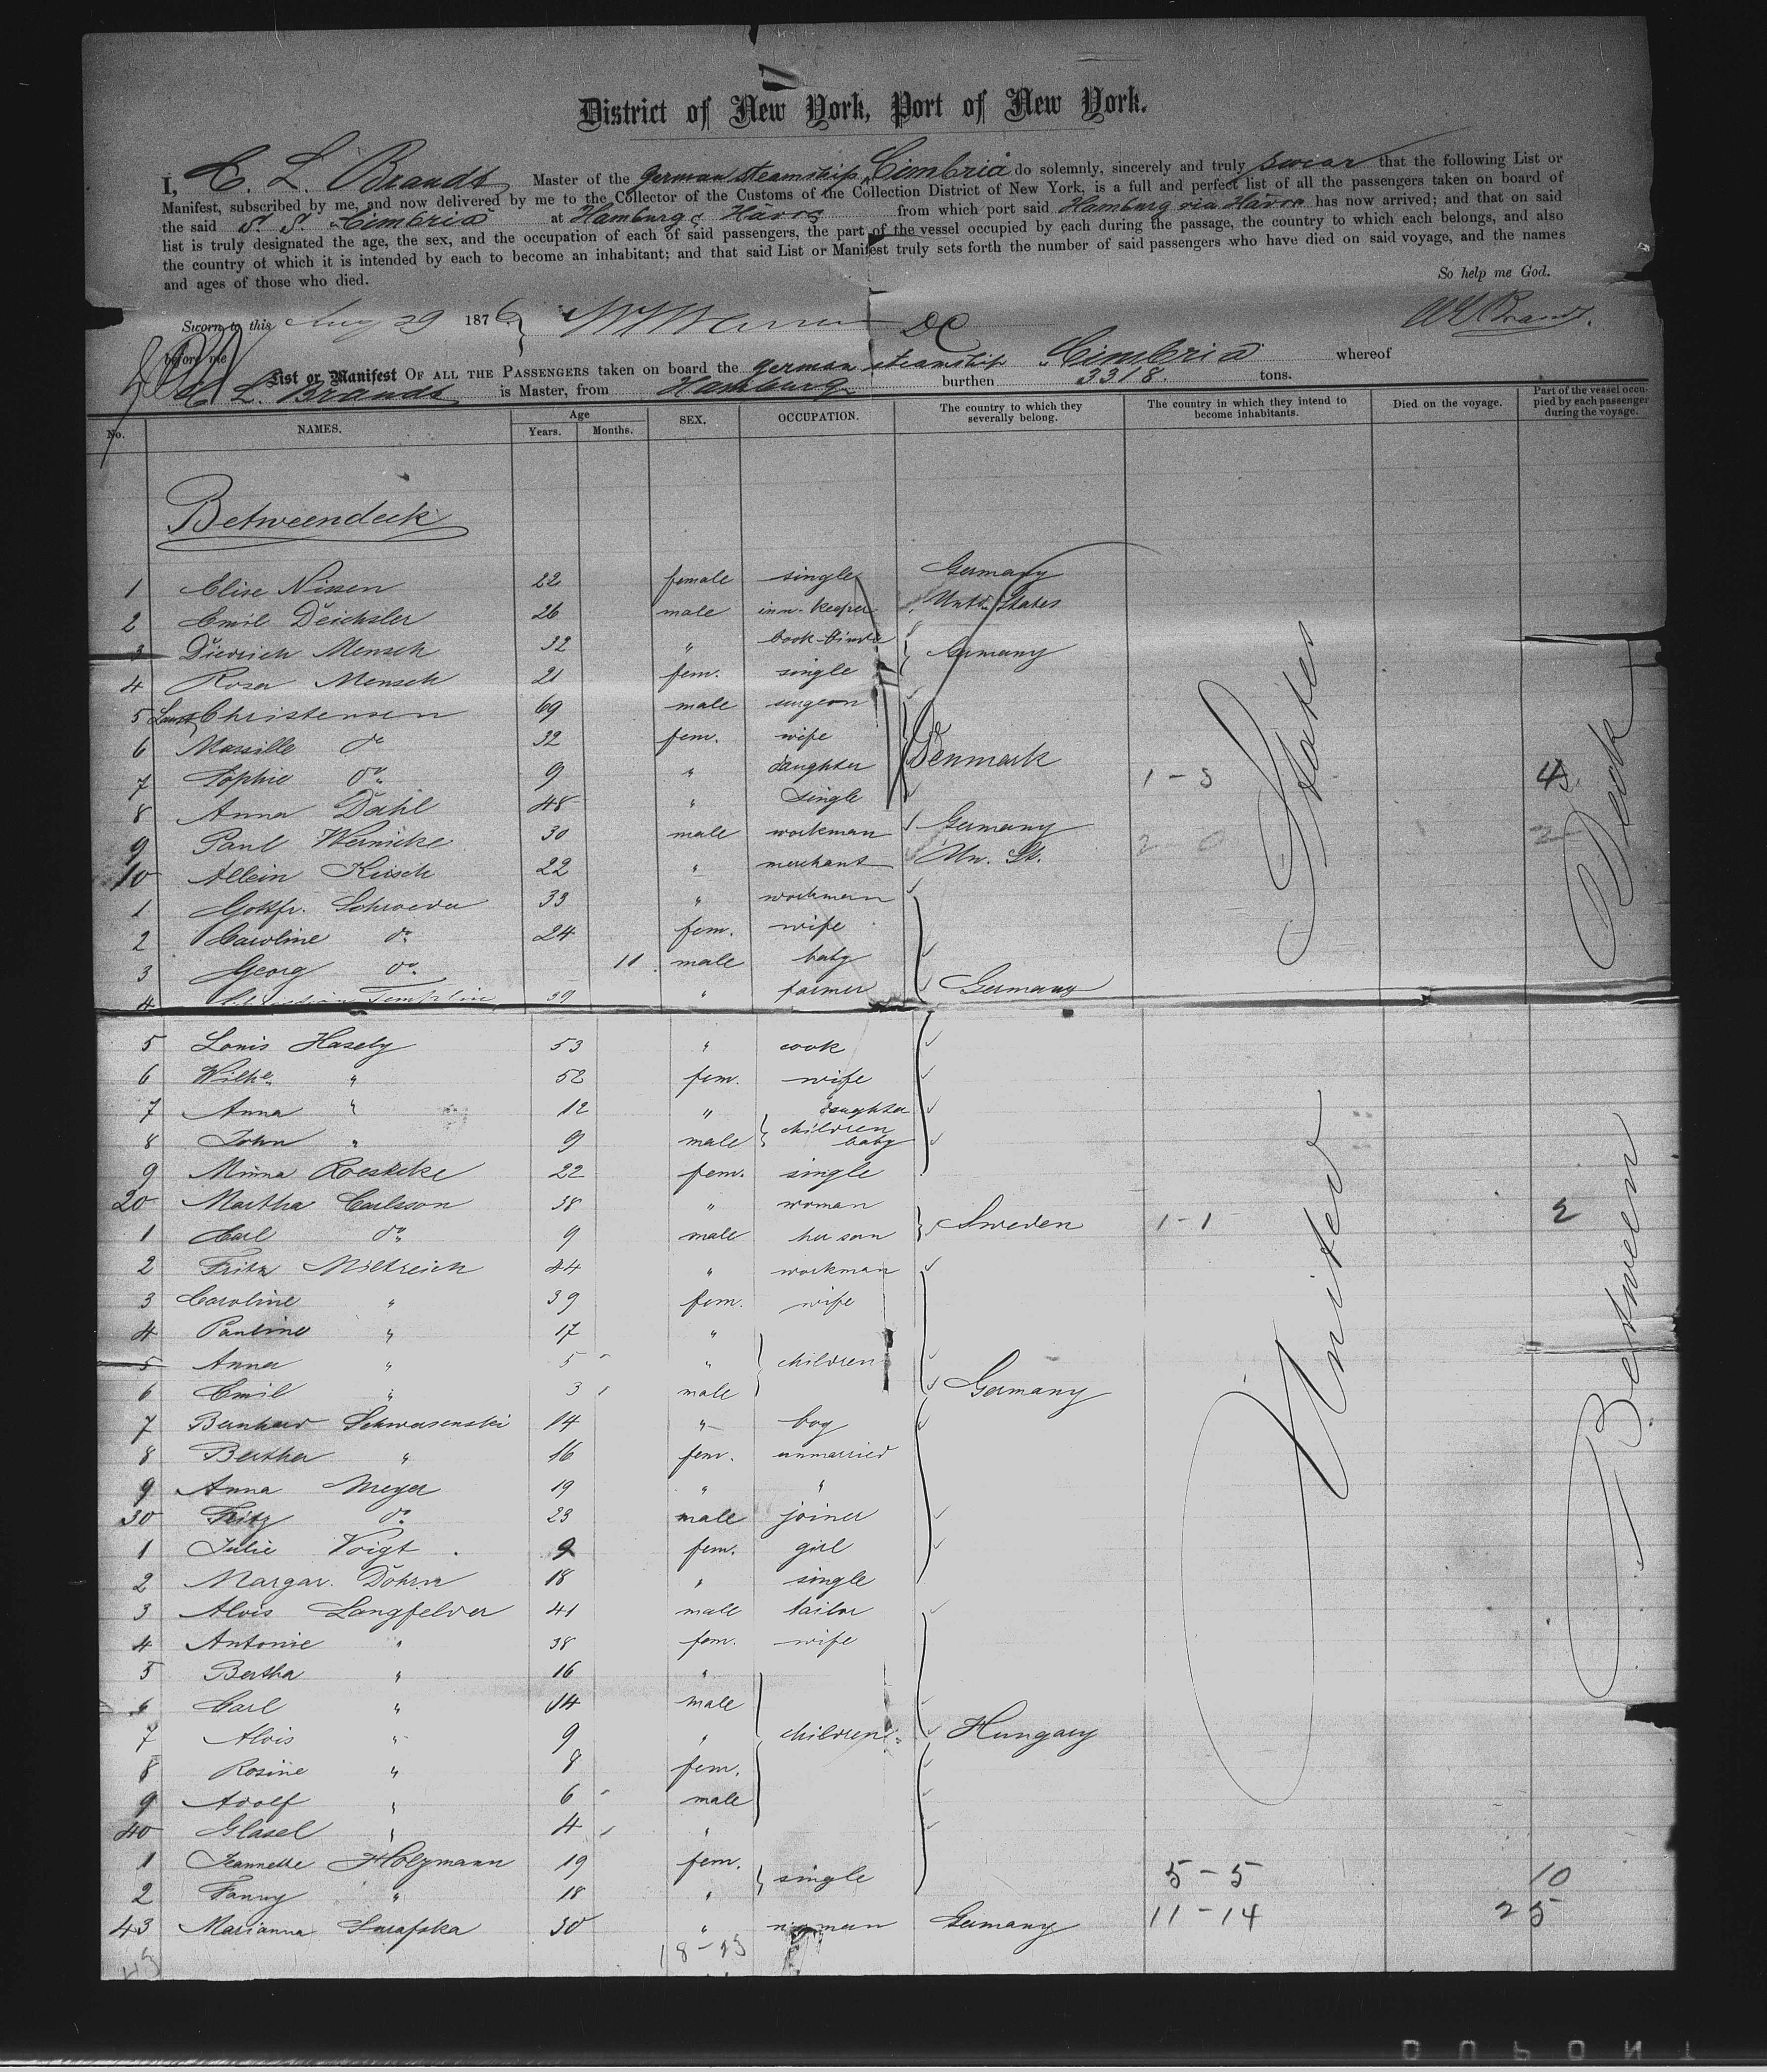 District of New York, Port of New York.
I, C. L. Brandt Master of the german steamship Cimbria do solemnly, sincerely and truly swear that the following List or
Manifest, subscribed by me, and now delivered by me to the Collector of the Customs of the Collection District of New York, is a full and perfect list of all the passengers taken on board of
the said S. S. Cimbria at Hamburg & Hâvre from which port said Hamburg via Hâvre has now arrived; and that on said
list is truly designated the age, the sex, and the occupation of each of said passengers, the part of the vessel occupied by each during the passage, the country to which each belongs, and also
the country of which it is intended by each to become an inhabitant; and that said List or Manifest truly sets forth the number of said passengers who have died on said voyage, and the names
and ages of those who died. So help me God.
Sworn to this Aug 29 1876 DC Brandt.
before me
List or Manifest OF ALL THE PASSENGERS taken on board the german steamship Cimbria whereof
L. Brandt is Master, from Hamburg burthen 3318. tons.
No. NAMES. Age Years. Months. SEX. OCCUPATION. The country to which they severally belong. The country in which they intend to become inhabitants. Died on the voyage. Part of the vessel occupied by each passenger during the voyage.
Betweendeck
1 Elise Nissen 22 female single Germany
2 Emil Deichsler 26 male inn-keeper Untd. States
3 Diedrich Mensch 32 " book-binder
4 Rosa Mensch 21 fem. single Germany
5 Christensen 69 male surgeon
6 do 32 fem. wife
7 Sophie do 9 " daughter Denmark 1-3 4
8 Anna Dahl 48 " single
9 Paul Wernicke 30 male workman Germany 2-0 2
10 Allein Kirsch 22 " merchant Un. St.
1 Gottfr. Schroeder 33 " workman
2 Caroline do 24 fem. wife
3 Georg do. 11 male baby
4 Templin 39 " farmer Germany
5 Louis Hasely 53 " cook
6 Wilhe. " 52 fem. wife
7 Anna " 12 " daughter
8 John " 9 male children baby
9 Minna 22 fem. single
20 Martha Carlsson 38 " woman
1 Carl do 9 male her son Sweden 1-1 2
2 Fritz Miltreich 44 " workman
3 Caroline " 39 fem. wife
4 Pauline " 17 "
5 Anna " 5 " children
6 Emil " 3 male Germany
7 Bernhard Schwersenski 14 " boy
8 Bertha " 16 fem. unmarried
9 Anna Meyer 19 " "
30 Fritz do 23 male joiner
1 Julie Voigt 9 fem. girl
2 Margar. Dohrn 18 " single
3 Alois Langfelder 41 male tailor
4 Antonie " 38 fem. wife
5 Bertha " 16 "
6 Carl " 14 male
7 Alois " 9 " children Hungary
8 Rosine " 8 fem.
9 Adolf " 6 male
40 Glasel " 4 "
1 Jeannette Holzmann 19 fem. 5-5 10
2 Fanny " 18 " single
43 Marianna 30 " woman Germany 11-14 25
18-23
43
United States
Between Deck
DUPONT